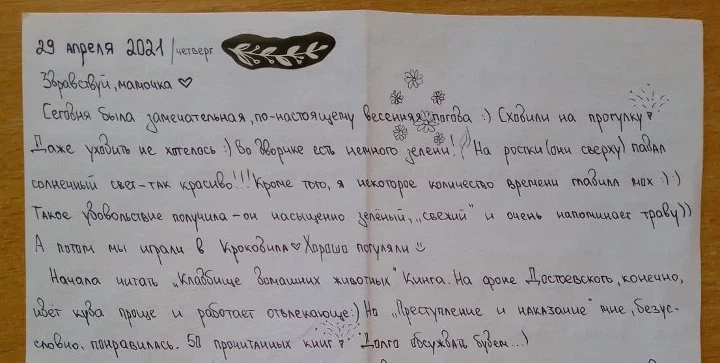 29 апреля 2021/четверг
Здравствуй, мамочка ♡
Сегодня была замечательная, по-настоящему весенняя погода :) Сходили на прогулку♥
Даже уходить не хотелось :) Во дворике есть немного зелени! На ростки (они сверху) падал
солнечный свет – так красиво!!! Кроме того, я некоторое количество времени гладила мох :) )
Такое удовольствие получила – он насыщенно зелёный, „свежий" и очень напоминает траву))
А потом мы играли в Крокодила♡ Хорошо погуляли ☺
Начала читать „Кладбище домашних животных" Кинга. На фоне Достоевского, конечно,
идёт куда проще и работает отвлекающе :) Но „Преступление и наказание" мне, безус-
ловно, понравилась. 50 прочитанных книг♥ Долго обсуждать будем...)